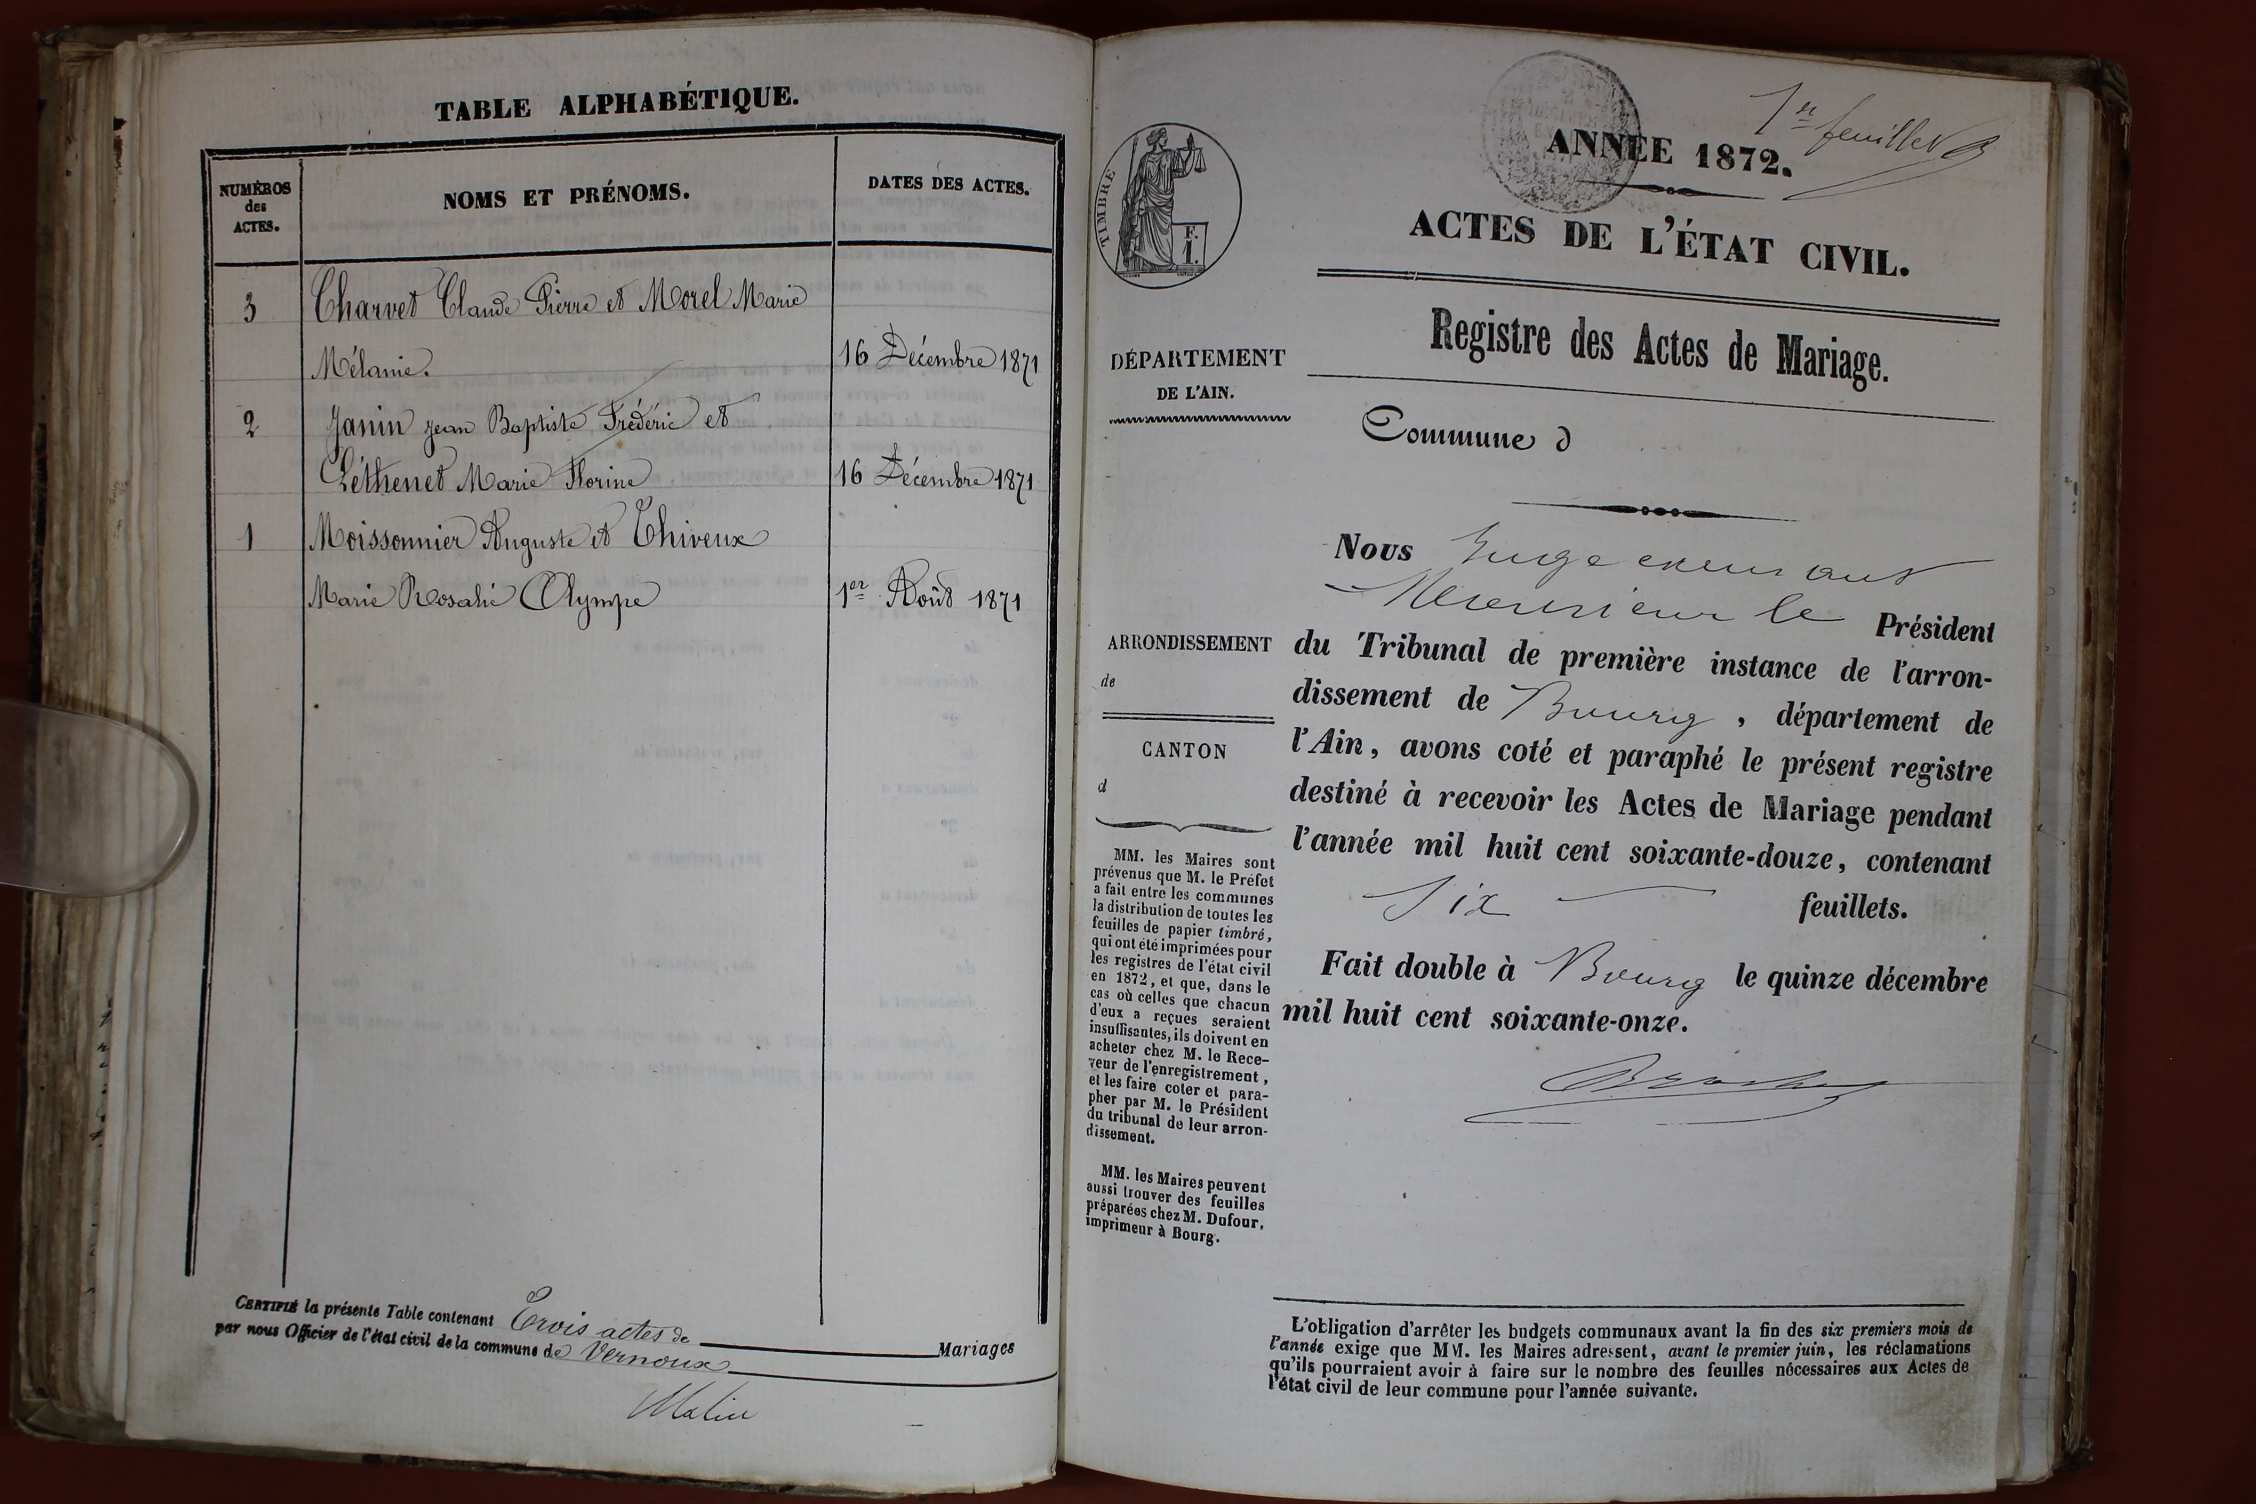 TABLE ALPHABÉTIQUE.
NUMÉROS
des
ACTES.
NOMS ET PRÉNOMS.
DATES DES ACTES.
3 Charvet Claude Pierre et Morel Marie
Mélanie. 16 Décembre 1871
2 Janin Jean Baptiste Frédéric et
Léthenet Marie Florine 16 Décembre 1871
1 Moissonnier Auguste et Thiveux
Marie Rosalie Olympe 1er Août 1871
CERTIFIÉ la présente Table contenant Trois actes de Mariages
par nous Officier de l'état civil de la commune de Vernoux
1er feuillet
ANNÉE 1872.
ACTES DE L'ÉTAT CIVIL.
Registre des Actes de Mariage.
Commune d
TIMBRE
F.
1.
DÉPARTEMENT
DE L'AIN.
ARRONDISSEMENT
de
CANTON
d
MM. les Maires sont
prévenus que M. le Préfet
a fait entre les communes
la distribution de toutes les
feuilles de papier timbré,
qui ont été imprimées pour
les registres de l'état civil
en 1872, et que, dans le
cas où celles que chacun
d'eux a reçues seraient
insuffisantes, ils doivent en
acheter chez M. le Rece-
veur de l'enregistrement,
et les faire coter et para-
pher par M. le Président
du tribunal de leur arron-
dissement.
MM. les Maires peuvent
aussi trouver des feuilles
préparées chez M. Dufour,
imprimeur à Bourg.
Nous Juge
le Président
du Tribunal de première instance de l'arron-
dissement de Bourg, département de
l'Ain, avons coté et paraphé le présent registre
destiné à recevoir les Actes de Mariage pendant
l'année mil huit cent soixante-douze, contenant
six feuillets.
Fait double à Bourg le quinze décembre
mil huit cent soixante-onze.
L'obligation d'arrêter les budgets communaux avant la fin des six premiers mois de
l'année exige que MM. les Maires adressent, avant le premier juin, les réclamations
qu'ils pourraient avoir à faire sur le nombre des feuilles nécessaires aux Actes de
l'état civil de leur commune pour l'année suivante.